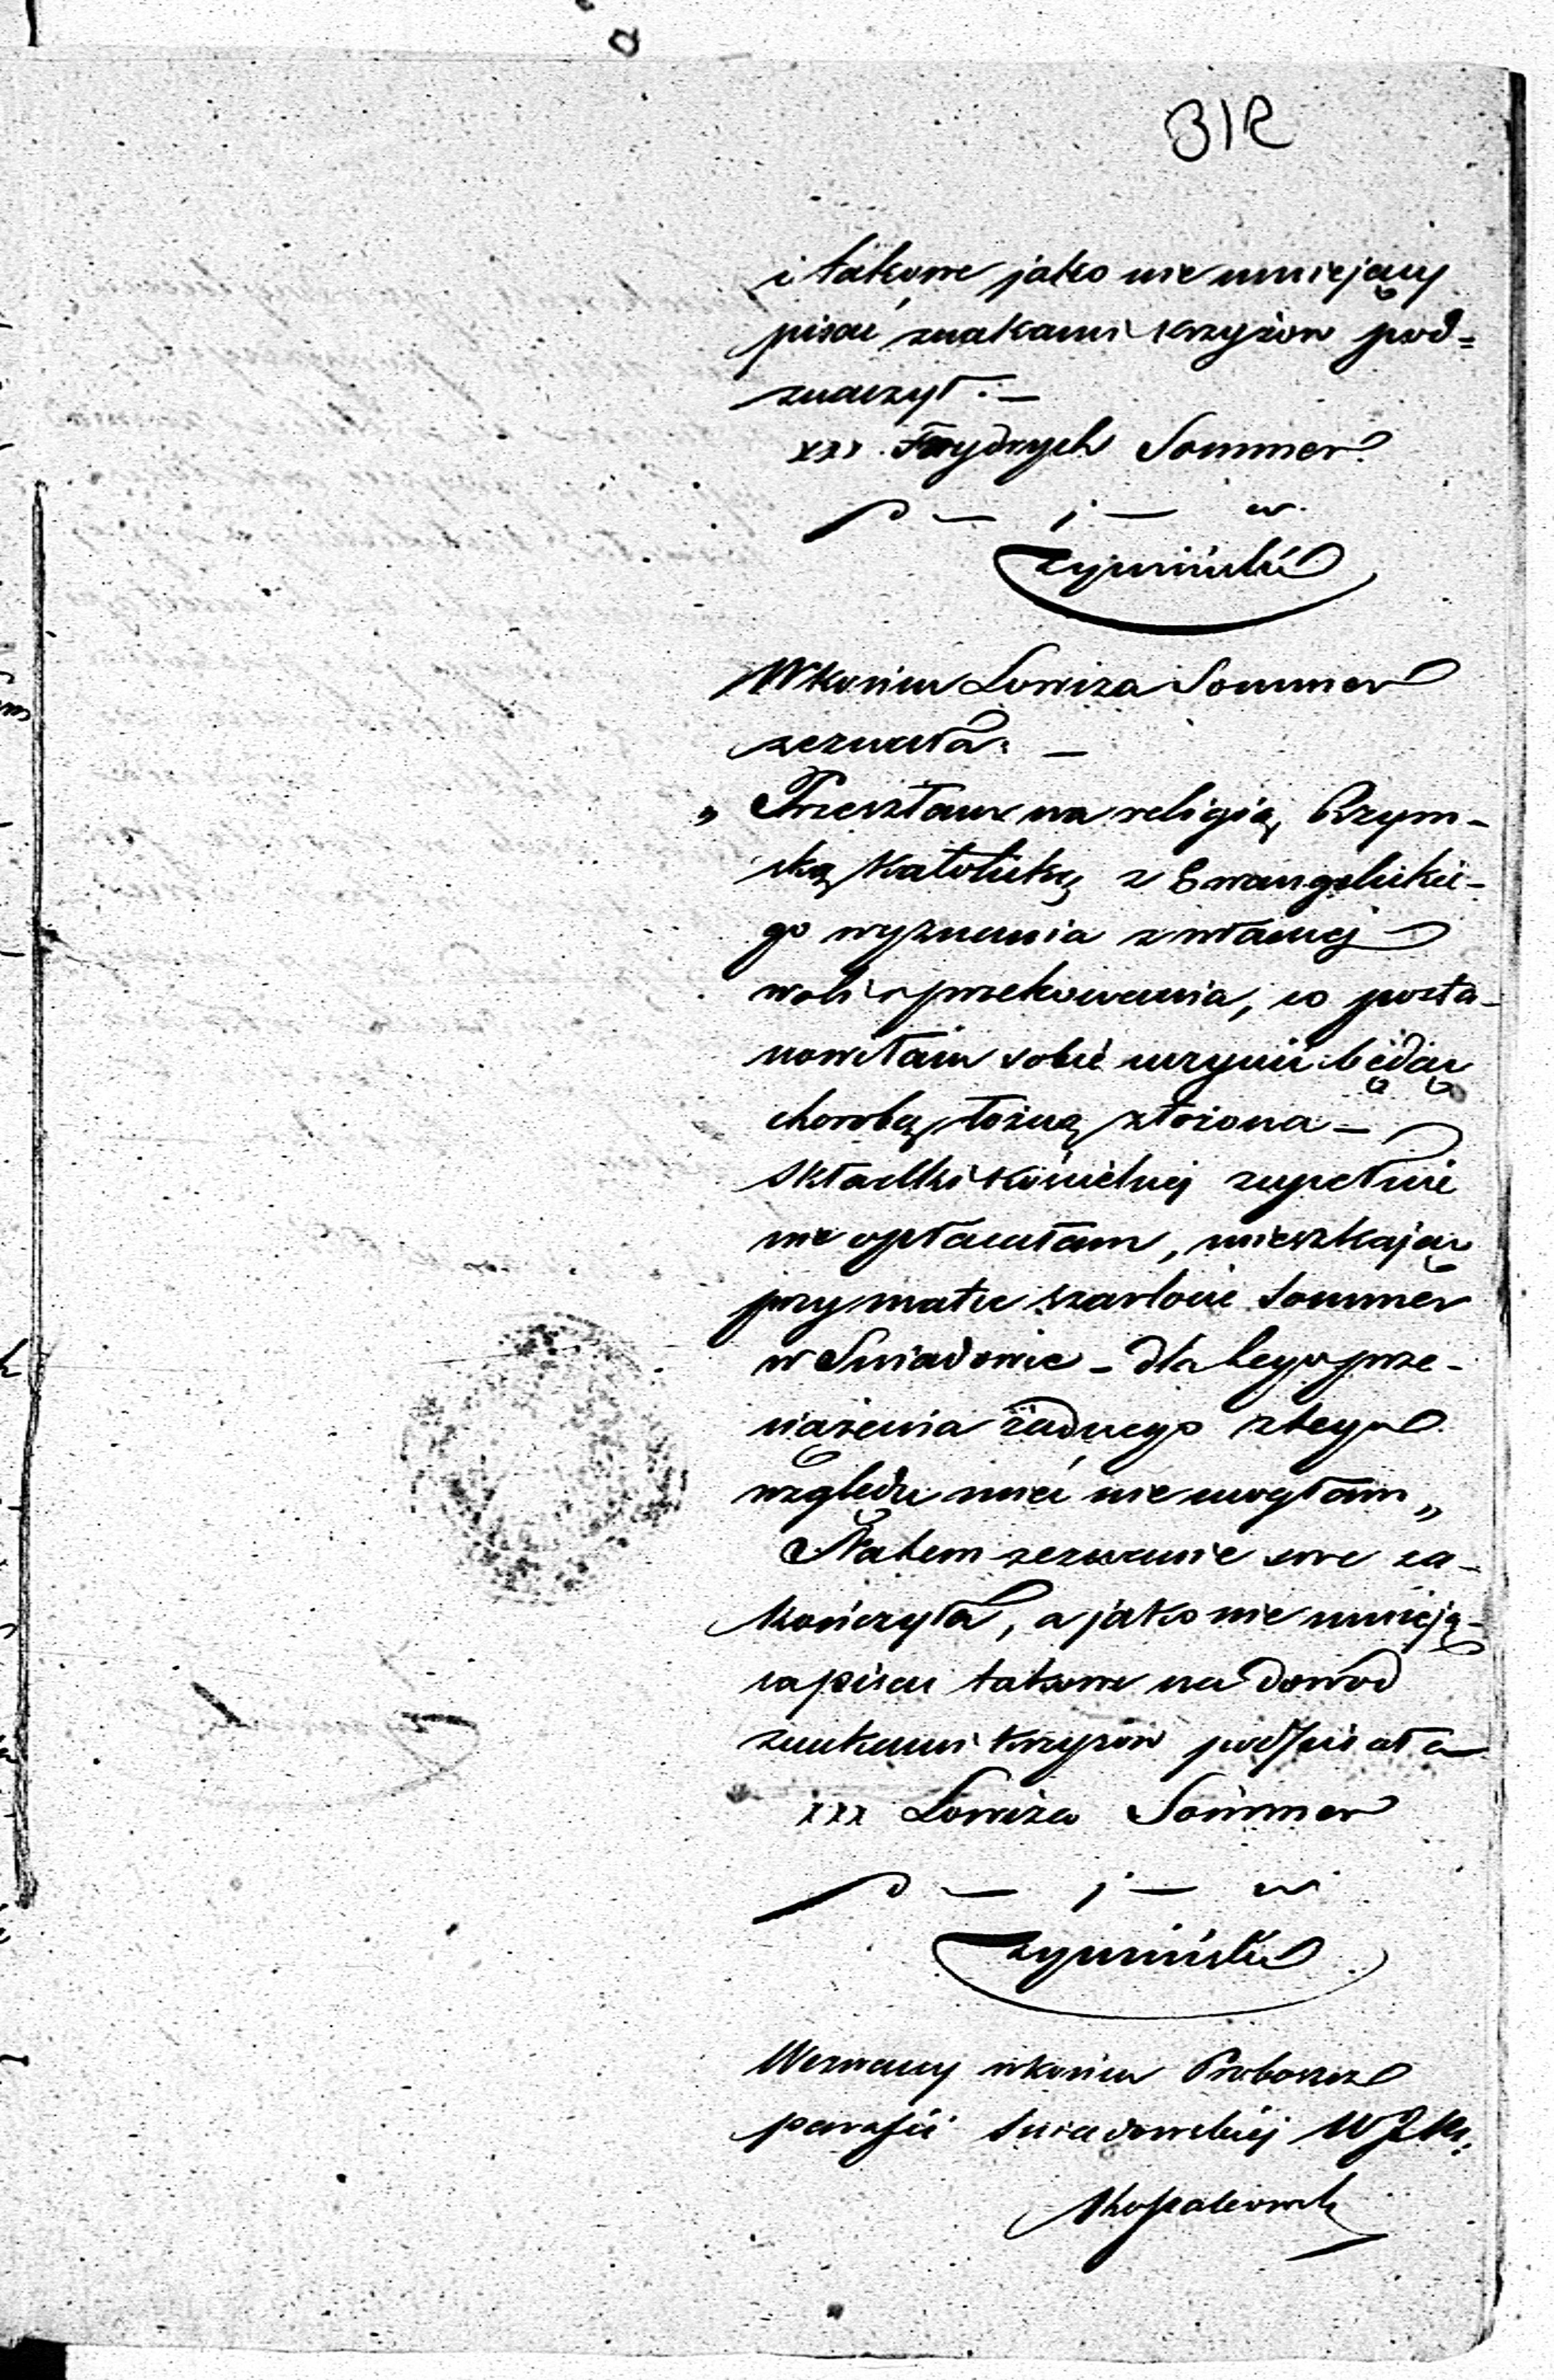 312
i takowe jako nie umiejący
pisać, znakami krzyżów pod=
znaczył. —
xxx Frydrych Sommer
p — j — w
Żymiński
W końcu Lowiza Sommer
zeznała: —
„Przeszłam na religią Rzym-
ską Katolicką z Ewangelickie-
go wyznania z własnej
woli i przekonania, co posta-
nowiłam sobie uczynić będąc
chorobą łożną złożona —
Składki kościelnej zupełnie
nie opłacałam, mieszkając
przy matce Szarlocie Sommer
w Sniadowie – dla tego prze-
ciążenia żadnego z tego
względu mieć nie mogłam„
Na tem zeznanie swe za-
kończyła, a jako nie umieją-
ca pisać takowe na dowód
znakami krzyżów podpisała
xxx Lowiza Sommer
p — j — w
Żymiński
Wezwany w końcu Proboszcz
parafii Sniadowskiej WJX